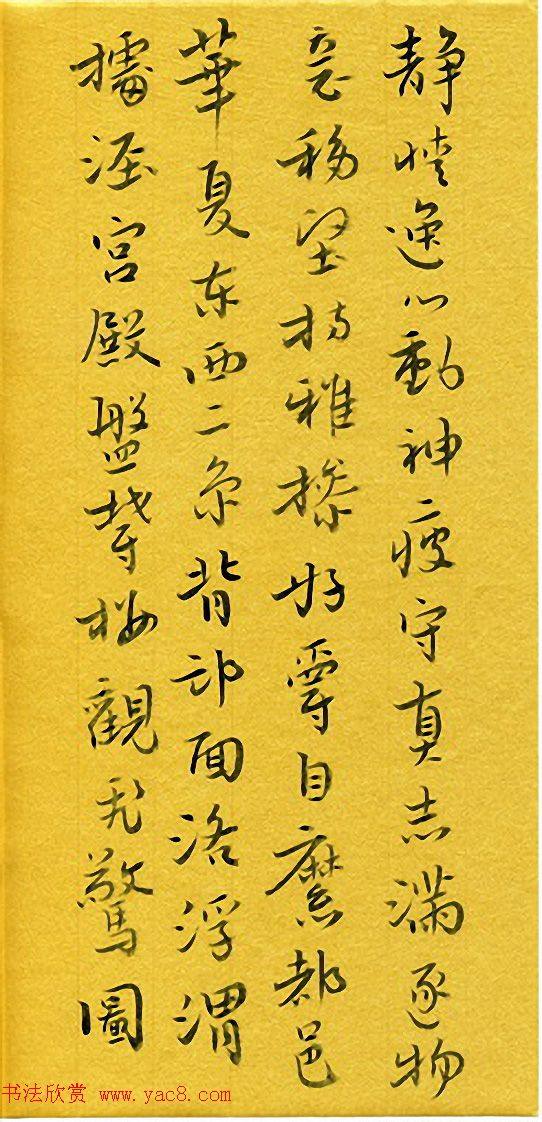 静情逸心動神疲守真志满逐物
意移坚持雅操好爵自縻都邑
華夏东西二京背邙面洛浮渭
據泾宫殿盤鬱楼觀飛驚圖
书法欣赏 www.yac8.com